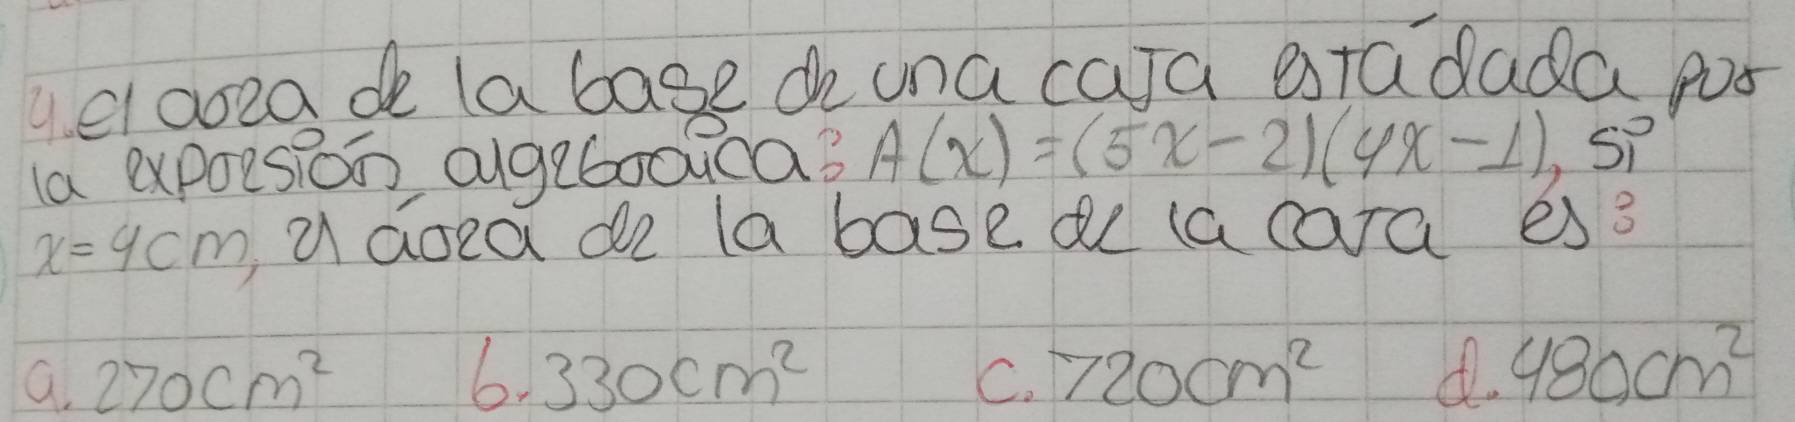 4. el área de la base de una caja está dada por
la expresión algebraica: A(x)=(5x-2)(4x-1), si
x=4cm, el área de la base de la caja es:
a. 270cm² b. 330cm² c. 720cm² d. 480cm²